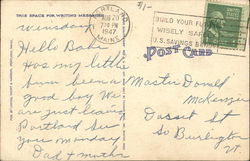 THIS SPACE FOR WRITING MESSAGES
PORTLAND
AUG 20
7 30 PM
1947
MAINE
BUILD YOUR FUTURE
WISELY SAFELY
U.S. SAVINGS BONDS
3/-
POST CARD
Hello Babe
Has my little
been a
good boy We
are just leaving
Portland See
you monday
Dad + mother
Master Donald
McKenzie
Dorset St
So Burlington
Vt.